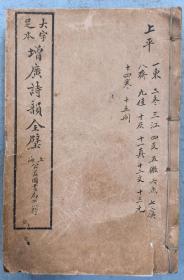 上平
一東 二冬 三江 四支 五微 六魚 七虞
八齊 九佳 十灰 十一真 十二文 十三元
十四寒 十五刪
大字
足本
增廣詩韻全璧
上